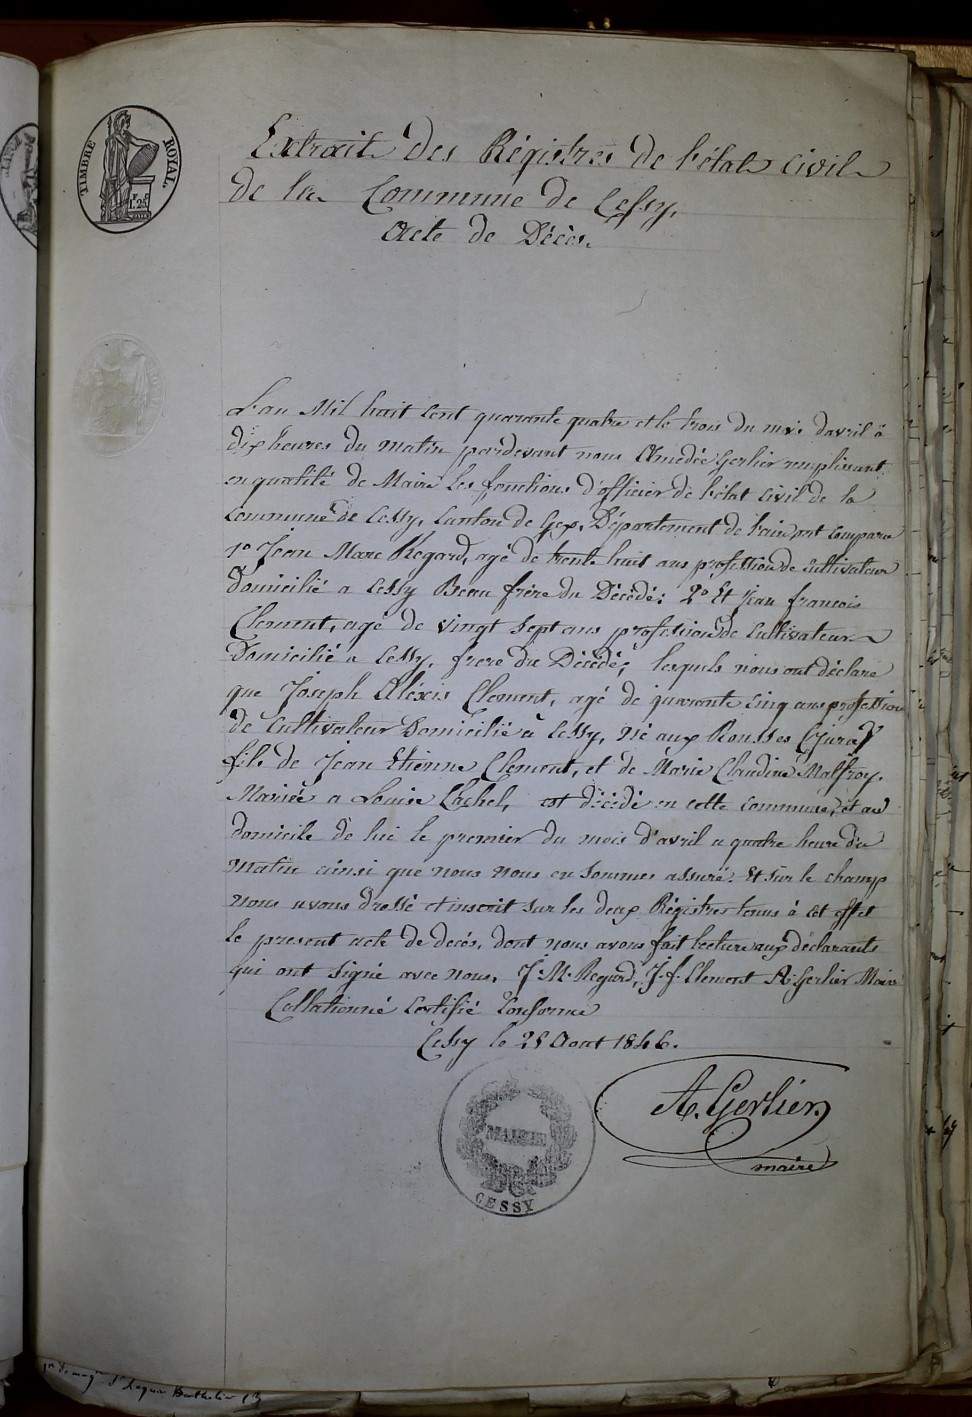 TIMBRE ROYAL.
1F.25C
Extrait des Régistres de l'état civil
de la Commune de Cessy.
Acte de Décès.
L'an Mil huit cent quarante quatre et le trois du mois d'avril à
dix heures du matin pardevant nous Amedée Gerlier remplissant
en qualité de Maire les fonctions d'officier de l'état civil de la
Commune de Cessy, Canton de Gex, Département de l'ain ont comparu
1º Jean Marc Regard, agé de trente huit ans profession de Cultivateur
Domicilié a Cessy Beau frère du Décédé; 2º Et Jean francois
Clement, agé de vingt sept ans profession de Cultivateur
Domicilié a Cessy, frere du Décédé; lesquels nous ont déclaré
que Joseph Aléxis Clement, agé de quarante cinq ans profession
de Cultivateur Domicilié à Cessy, né aux Rousses (Jura)
fils de Jean Etienne Clement, et de Marie Claudine Malfroy.
Mariée a Louise Cachel, est décédé en cette commune, et au
domicile de lui le premier du mois d'avril a quatre heure du
matin ainsi que nous nous en sommes assuré. Et sur le champ
nous avons dressé et inscrit sur les deux Régistres tenus à cet effet
le present acte de decés, dont nous avons fait lecture aux déclarants
qui ont signé avec nous. J. M. Regard, J. f. Clement A. Gerlier Maire
Collationné Certifié Conforme
Cessy le 25 Aout 1846.
A. Gerlier
maire
MAIRIE
CESSY